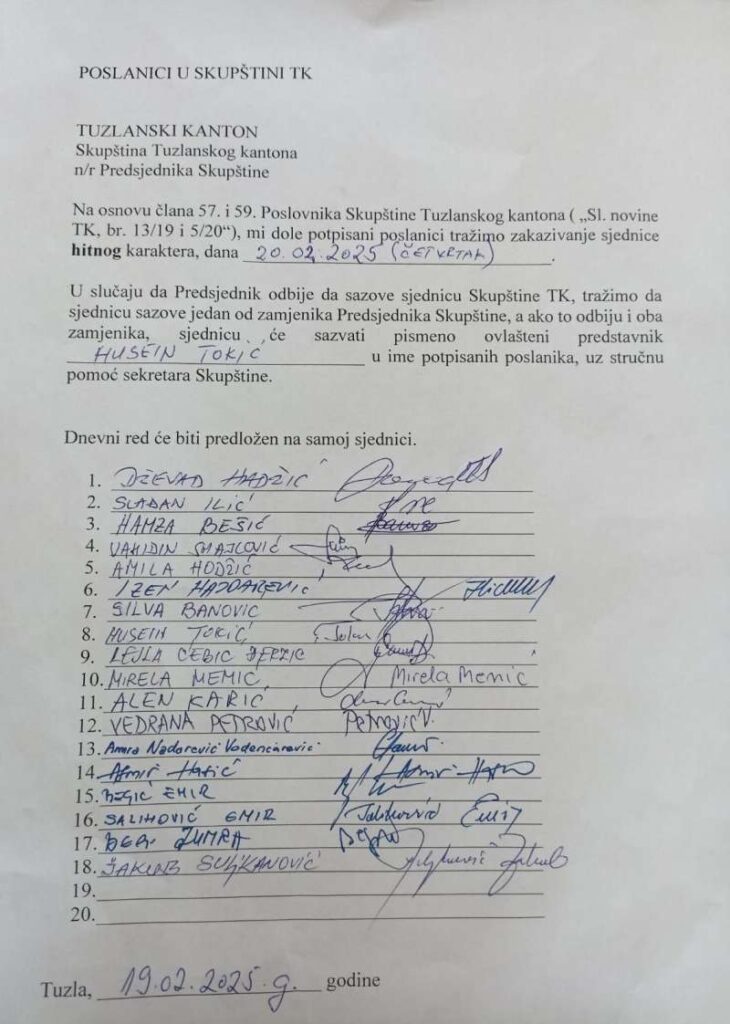 POSLANICI U SKUPŠTINI TK
TUZLANSKI KANTON
Skupština Tuzlanskog kantona
n/r Predsjednika Skupštine
Na osnovu člana 57. i 59. Poslovnika Skupštine Tuzlanskog kantona ( „Sl. novine
TK, br. 13/19 i 5/20“), mi dole potpisani poslanici tražimo zakazivanje sjednice
hitnog karaktera, dana 20.02.2025 (ČETVRTAK).
U slučaju da Predsjednik odbije da sazove sjednicu Skupštine TK, tražimo da
sjednicu sazove jedan od zamjenika Predsjednika Skupštine, a ako to odbiju i oba
zamjenika, sjednicu će sazvati pismeno ovlašteni predstavnik
HUSEIN TOKIĆ u ime potpisanih poslanika, uz stručnu
pomoć sekretara Skupštine.
Dnevni red će biti predložen na samoj sjednici.
1. DŽEVAD HADŽIĆ
2. SLAĐAN ILIĆ
3. HAMZA BEŠIĆ
4. VAHIDIN SMAJLOVIĆ
5. AMILA HODŽIĆ
6. IZEN HAJDAREVIĆ
7. SILVA BANOVIĆ
8. HUSEIN TOKIĆ
9. LEJLA
10. MIRELA MEMIĆ Mirela Memić
11. ALEN KARIĆ
12. VEDRANA PETROVIĆ Petrović V.
13. Amra Nadarević Vodenčarević
14. Admir Hasić
15. BEGIĆ EMIR
16. SALIHOVIĆ EMIR Salihović Emir
17. ZUMRA
18. JAKUB SULJKANOVIĆ
19.
20.
Tuzla, 19.02.2025.g. godine